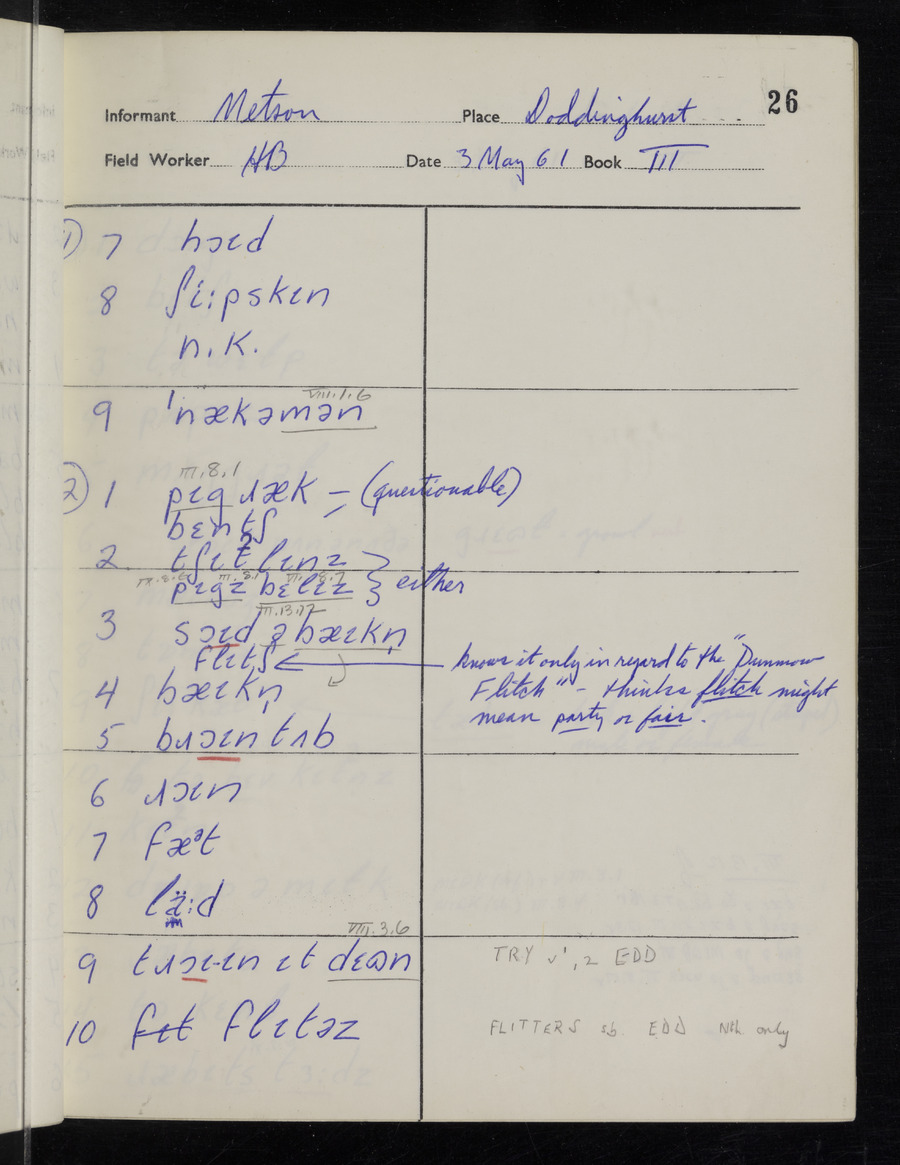 26
Informant Metson Place Doddinghurst
Field Worker HB Date 3 May 61 Book III
1) 7 hɔɪd
8 ʃi:pskɪn
n.k.
VIII.1.6
9 ˈnækəmən
III.8.1
2) 1 pɪg ɹæk – (questionable)
bɛntʃ
2. tʃɪtlɪnz } either
pɪgz bɛlɪz
3 sɔɪd ə bæɪkn̩
flɪtʃ ← knows it only in regard to the "Dunmow
4 bæɪkn̩ Flitch" – thinks flitch might
mean party or fair.
5 bɹɔɪn tʌb
6 ɹɔɪn
7 fæᵊt
8 lä:d
VIII.3.6
9 tɹɔɪ-ɪn ɪt dɛʊn TRY v¹, 2 EDD
10 fɪt flɪtəz FLITTERS sb. EDD Nth. only